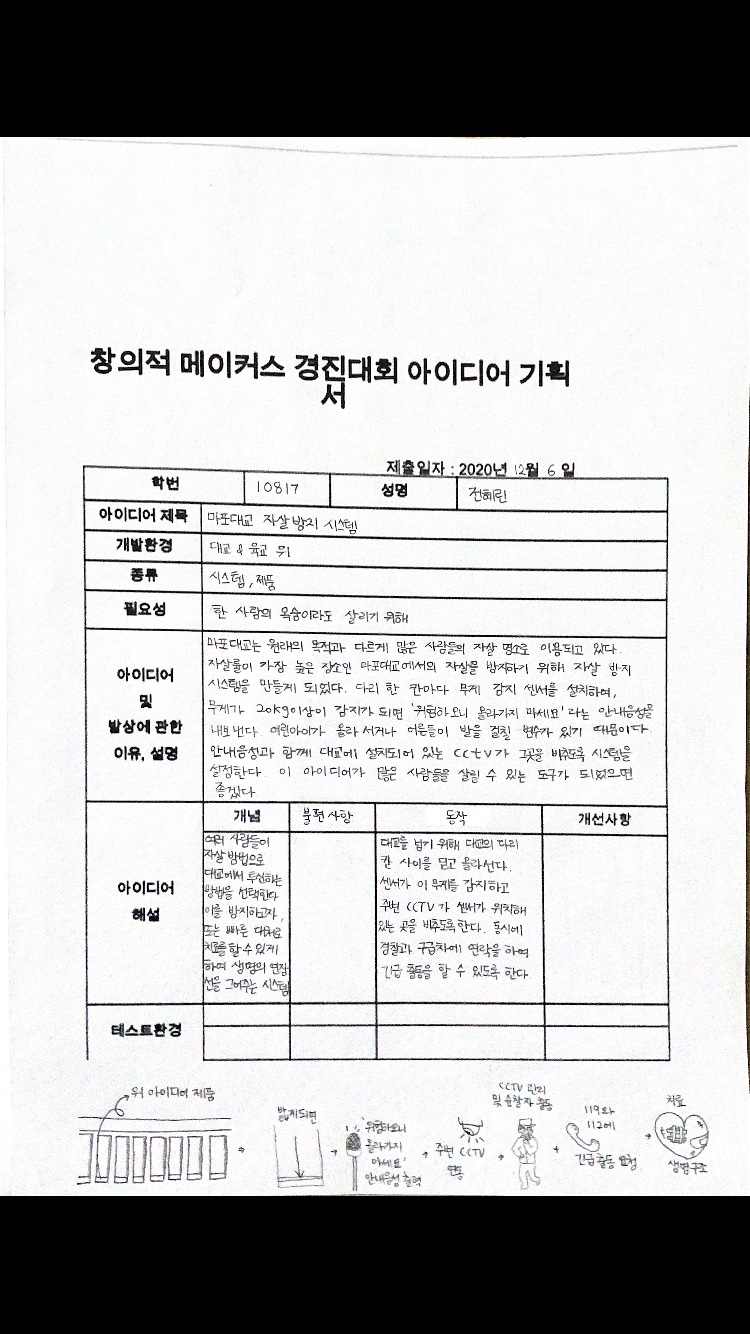 창의적 메이커스 경진대회 아이디어 기획
서
제출일자 : 2020년 12월 6일
학번 10817 성명 전혜린
아이디어 제목 마포대교 자살방지 시스템
개발환경 대교 & 육교 위
종류 시스템, 제품
필요성 한 사람의 목숨이라도 살리기 위해
아이디어
및
발상에 관한
이유, 설명
마포대교는 원래의 목적과 다르게 많은 사람들의 자살 명소로 이용되고 있다.
자살률이 가장 높은 장소인 마포대교에서의 자살을 방지하기 위해 자살 방지
시스템을 만들게 되었다. 다리 한 칸마다 무게 감지 센서를 설치하여,
무게가 20kg이상이 감지가 되면 '위험하오니 올라가지 마세요' 라는 안내음성을
내보낸다. 어린아이가 올라 서거나 어른들이 발을 걸칠 변수가 있기 때문이다.
안내음성과 함께 대교에 설치되어 있는 cctv가 그곳을 비추도록 시스템을
설정한다. 이 아이디어가 많은 사람들을 살릴 수 있는 도구가 되었으면
좋겠다
아이디어
해설
개념 불편사항 동작 개선사항
여러 사람들이
자살 방법으로
대교에서 투신하는
방법을 선택한다
이를 방지하고자,
또는 빠른 대처로
치료를 할 수 있게
하여 생명의 연장
선을 그어주는 시스템
대교를 넘기 위해 대교의 다리
칸 사이를 딛고 올라선다.
센서가 이 무게를 감지하고
주변 CCTV가 센서가 위치해
있는 곳을 비추도록 한다. 동시에
경찰과 구급차에 연락을 하여
긴급 출동을 할 수 있도록 한다
테스트환경
위 아이디어 제품
밟게되면
'위험하오니
올라가지
마세요'
안내음성 출력
주변 CCTV
연동
CCTV 관리
및 순찰자 출동
119와
112에
긴급출동 요청
치료
생명구조